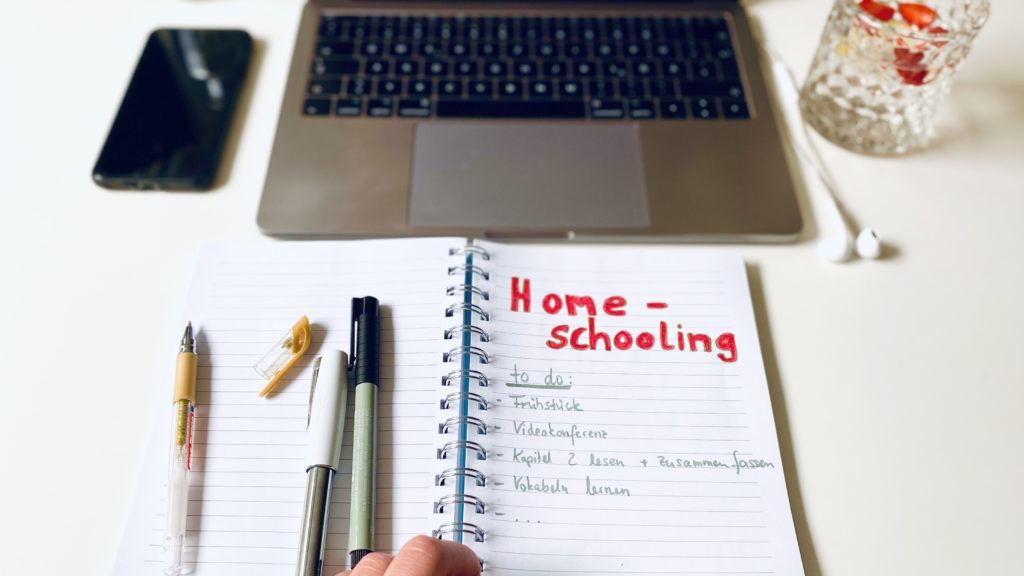 Home -
schooling
to do:
- Frühstück
- Videokonferenz
- Kapitel 2 lesen + zusammenfassen
- Vokabeln lernen
- ...